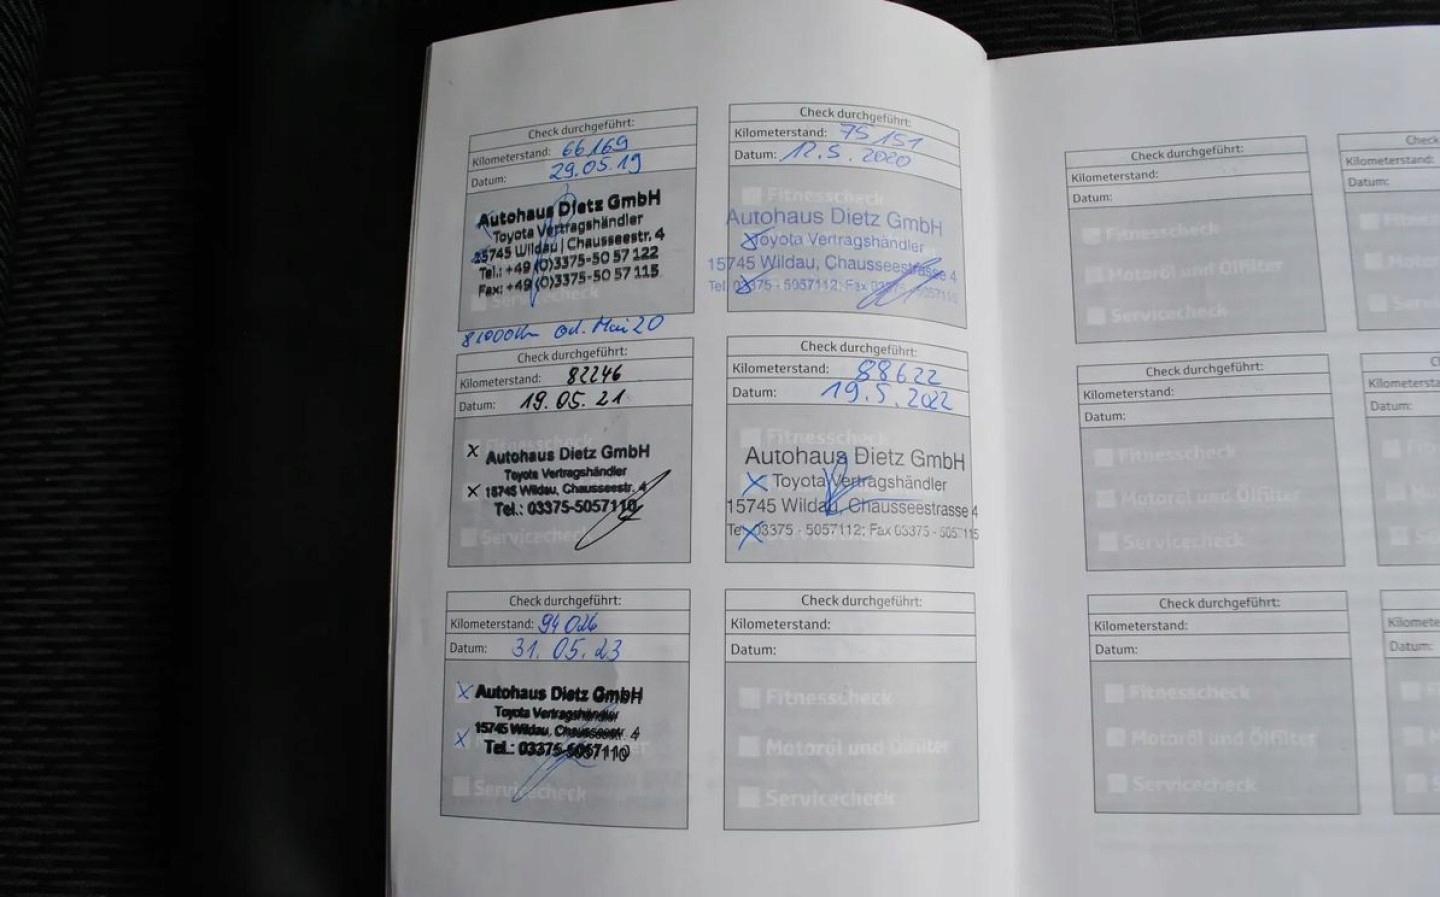 Check durchgeführt:
Kilometerstand: 66169
Datum: 29.05.19
Autohaus Dietz GmbH
Toyota Vertragshändler
15745 Wildau | Chausseestr. 4
Tel.: +49 (0)3375-50 57 122
Fax: +49 (0)3375-50 57 115
Servicecheck
Check durchgeführt:
Kilometerstand: 75 151
Datum: 12.5.2020
Fitnesscheck
Autohaus Dietz GmbH
Toyota Vertragshändler
15745 Wildau, Chausseestrasse 4
Tel. 03375 - 5057112; Fax 03375 - 5057115
81000km od. Mai 20
Check durchgeführt:
Kilometerstand: 82246
Datum: 19.05.21
Fitnesscheck
Autohaus Dietz GmbH
Toyota Vertragshändler
15745 Wildau, Chausseestr. 4
Tel.: 03375-5057110
Servicecheck
Check durchgeführt:
Kilometerstand: 88622
Datum: 19.5.2022
Fitnesscheck
Autohaus Dietz GmbH
Toyota Vertragshändler
15745 Wildau, Chausseestrasse 4
Tel. 03375 - 5057112; Fax 03375 - 5057115
Check durchgeführt:
Kilometerstand: 94026
Datum: 31.05.23
Autohaus Dietz GmbH
Toyota Vertragshändler
15745 Wildau, Chausseestr. 4
Tel.: 03375-5057110
Servicecheck
Check durchgeführt:
Kilometerstand:
Datum:
Fitnesscheck
Motoröl und Ölfilter
Servicecheck
Check durchgeführt:
Kilometerstand:
Datum:
Fitnesscheck
Motoröl und Ölfilter
Servicecheck
Check
Kilometerstand:
Datum:
Check durchgeführt:
Kilometerstand:
Datum:
Fitnesscheck
Motoröl und Ölfilter
Servicecheck
Kilometersta
Datum:
Check durchgeführt:
Kilometerstand:
Datum:
Fitnesscheck
Motoröl und Ölfilter
Servicecheck
Kilomete
Datum: